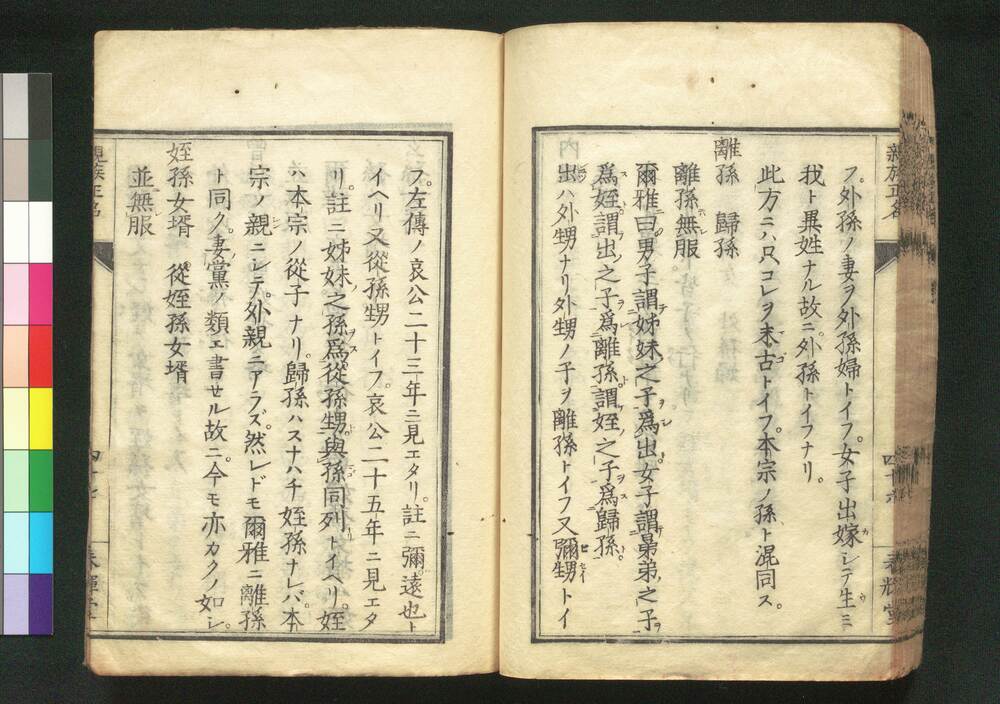 フ。外孫ノ妻ヲ外孫婦トイフ。女子出嫁シテ生ミ
我ト異姓ナル故ニ。外孫トイフナリ。
此方ニハ只コレヲ末古トイフ。本宗ノ孫ト混同ス。
離孫　歸孫
離孫無服
爾雅曰。男子謂姊妹之子爲出。女子謂晜弟之子
爲姪。謂出之子爲離孫。謂姪之子爲歸孫。
出ハ外甥ナリ外甥ノ子ヲ離孫トイフ又彌甥トイ
フ。左傳ノ哀公二十三年ニ見エタリ。註ニ彌遠也ト
イヘリ又從孫甥トイフ。哀公二十五年ニ見エタ
リ。註ニ姊妹之孫爲從孫甥與孫同列トイヘリ。姪
ハ本宗ノ從子ナリ。歸孫ハスナハチ姪孫ナレバ。本
宗ノ親ニシテ。外親ニアラズ。然レドモ爾雅ニ離孫
ト同ク。妻黨ノ類エ書セル故ニ。今モ亦カクノ如シ。
姪孫女壻　從姪孫女壻
並無服
親族正名
四十六
春輝堂
親族正名
四十七
春輝堂